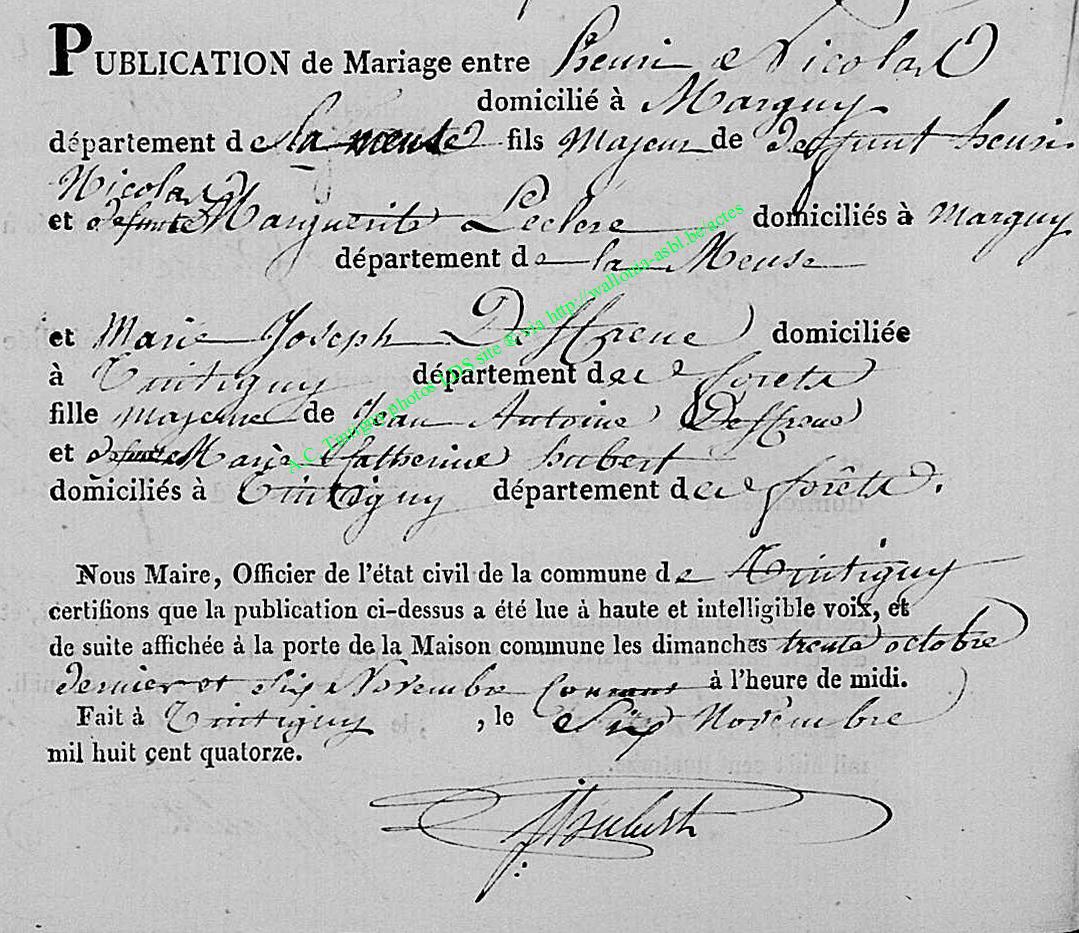 PUBLICATION de Mariage entre henri Nicolas
domicilié à Marguy
département de la meuse fils Majeur de deffunt henri
Nicolas
et defunte Marguerite Leclere domiciliés à Marguy
département de la Meuse
et Marie Joseph Deffrene domiciliée
à Tintigny département des forets
fille majeure de Jean Antoine Deffrene
et defunte Marie Catherine hubert
domiciliés à Tintigny département des forêts.
Nous Maire, Officier de l'état civil de la commune de Tintigny
certifions que la publication ci-dessus a été lue à haute et intelligible voix, et
de suite affichée à la porte de la Maison commune les dimanches trente octobre
dernier et six Novembre courant à l'heure de midi.
Fait à Tintigny, le six Novembre
mil huit cent quatorze.
hubert
A.C. Tintigny photos LDS site © via http://wallonia-asbl.be/actes